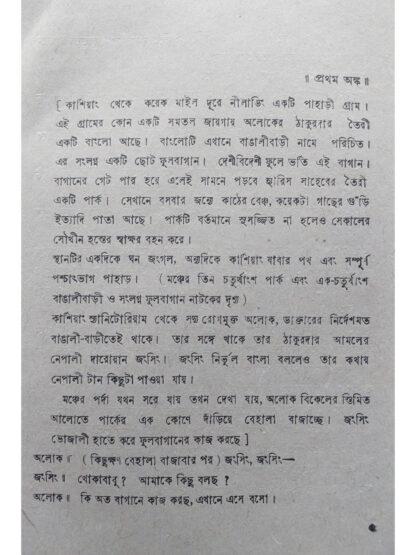 ॥ প্রথম অঙ্ক ॥
[ কার্শিয়াং থেকে কয়েক মাইল দূরে নীলাভিং একটি পাহাড়ী গ্রাম।
এই গ্রামের কোন একটি সমতল জায়গায় অলোকের ঠাকুরদার তৈরী
একটি বাংলো আছে। বাংলোটি এখানে বাঙালীবাড়ী নামে পরিচিত।
এর সংলগ্ন একটি ছোট ফুলবাগান। দেশীবিদেশী ফুলে ভর্তি এই বাগান।
বাগানের গেট পার হয়ে এলেই সামনে পড়বে হ্যারিস সাহেবের তৈরী
একটি পার্ক। সেখানে বসবার জন্যে কাঠের বেঞ্চ, কয়েকটা গাছের গুঁড়ি
ইত্যাদি পাতা আছে। পার্কটি বর্তমানে সুসজ্জিত না হলেও সেকালের
সৌখীন হস্তের স্বাক্ষর বহন করে।
স্থানটির একদিকে ঘন জংগল, অন্যদিকে কার্শিয়াং যাবার পথ এবং সম্পূর্ণ
পশ্চাৎভাগ পাহাড়। ( মঞ্চের তিন চতুর্থাংশ পার্ক এবং এক-চতুর্থাংশ
বাঙালীবাড়ী ও সংলগ্ন ফুলবাগান নাটকের দৃশ্য )
কার্শিয়াং স্যানিটোরিয়াম থেকে সদ্য রোগমুক্ত অলোক, ডাক্তারের নির্দেশমত
বাঙালী-বাড়ীতেই থাকে। তার সঙ্গে থাকে তার ঠাকুরদার আমলের
নেপালী দারোয়ান জংসিং। জংসিং নির্ভুল বাংলা বললেও তার কথায়
নেপালী টান কিছুটা পাওয়া যায়।
মঞ্চের পর্দা যখন সরে যায় তখন দেখা যায়, অলোক বিকেলের স্তিমিত
আলোতে পার্কের এক কোণে দাঁড়িয়ে বেহালা বাজাচ্ছে। জংসিং
ভোজালী হাতে করে ফুলবাগানের কাজ করছে ]
অলোক॥ ( কিছুক্ষণ বেহালা বাজাবার পর ) জংসিং, জংসিং—
জংসিং॥ খোকাবাবু? আমাকে কিছু বলছ?
অলোক॥ কি অত বাগানে কাজ করছ, এখানে এসে বসো।